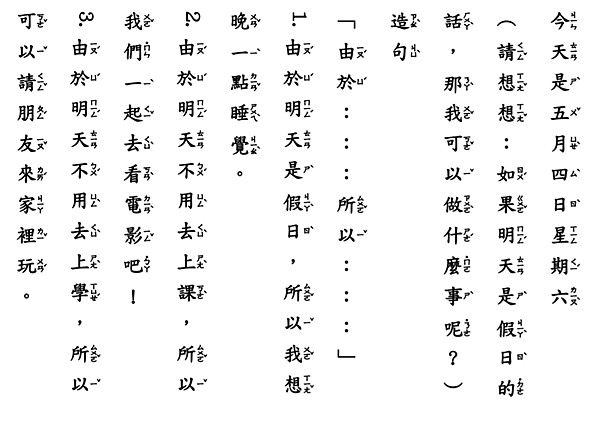 今天是五月四日星期六
（請想想：如果明天是假日的
話，那我可以做什麼事呢？）
造句
「由於：：：所以：：：」
1.由於明天是假日，所以我想
晚一點睡覺。
2.由於明天不用去上課，所以
我們一起去看電影吧！
3.由於明天不用去上學，所以
可以請朋友來家裡玩。